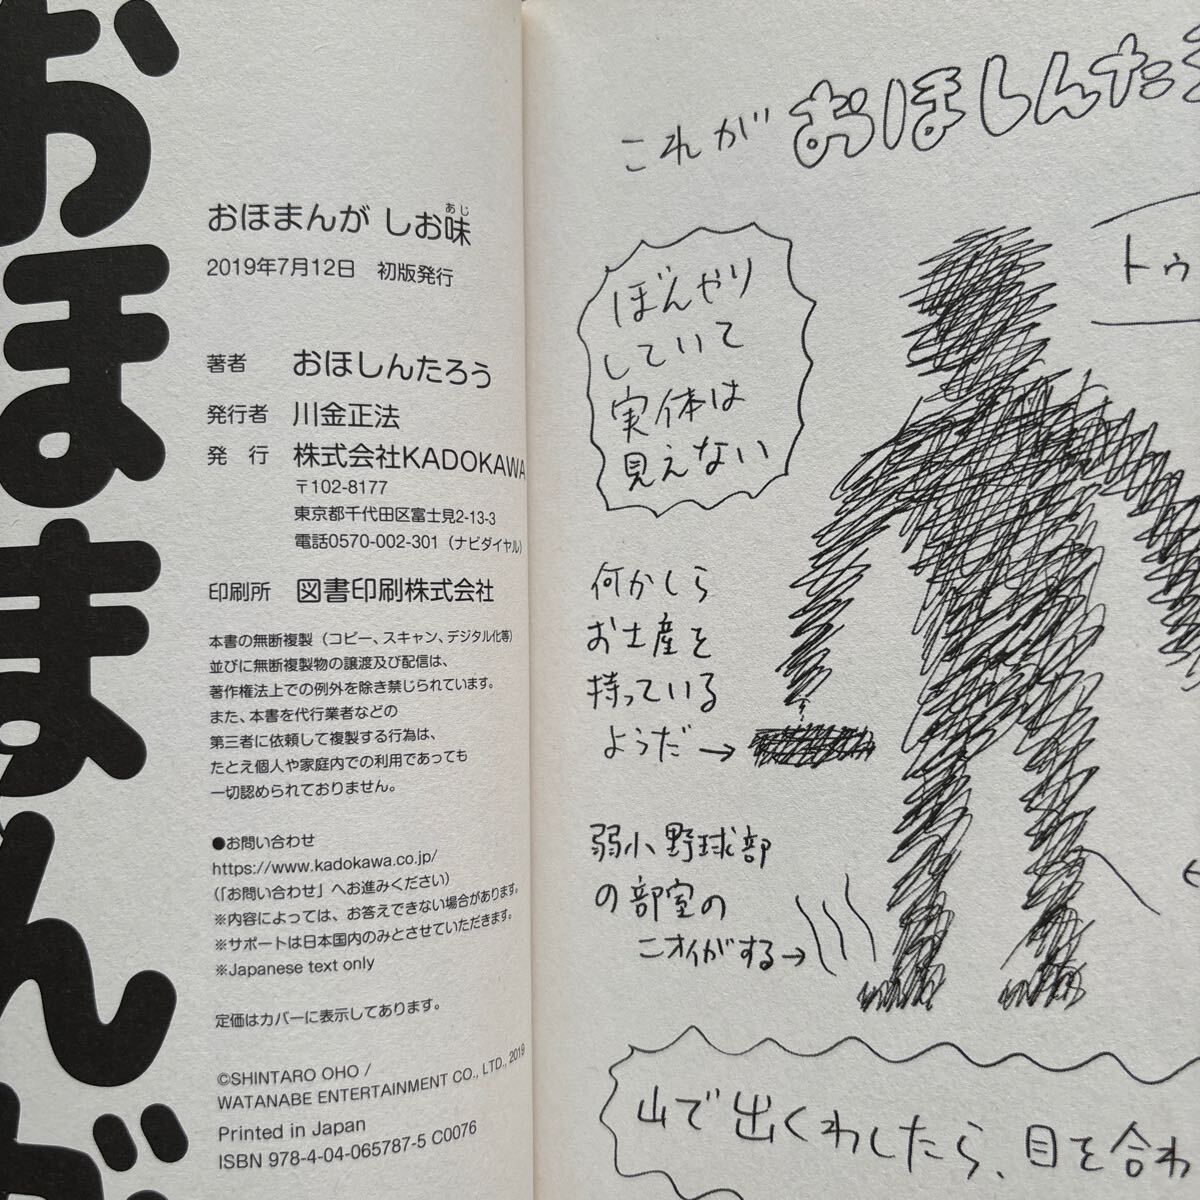 おほまんが
おほまんが しお味
あじ
2019年7月12日 初版発行
著者 おほしんたろう
発行者 川金正法
発 行 株式会社KADOKAWA
〒102-8177
東京都千代田区富士見2-13-3
電話0570-002-301（ナビダイヤル）
印刷所 図書印刷株式会社
本書の無断複製（コピー、スキャン、デジタル化等）
並びに無断複製物の譲渡及び配信は、
著作権法上での例外を除き禁じられています。
また、本書を代行業者などの
第三者に依頼して複製する行為は、
たとえ個人や家庭内での利用であっても
一切認められておりません。
●お問い合わせ
https://www.kadokawa.co.jp/
（「お問い合わせ」へお進みください）
※内容によっては、お答えできない場合があります。
※サポートは日本国内のみとさせていただきます。
※Japanese text only
定価はカバーに表示してあります。
©SHINTARO OHO /
WATANABE ENTERTAINMENT CO., LTD., 2019
Printed in Japan
ISBN 978-4-04-065787-5 C0076
これが おほしんた
トゥ
ぼんやり
していて
実体は
見えない
何かしら
お土産を
持っている
ようだ→
弱小野球部
の部室の
ニオイがする→
山で出くわしたら、目を合わ